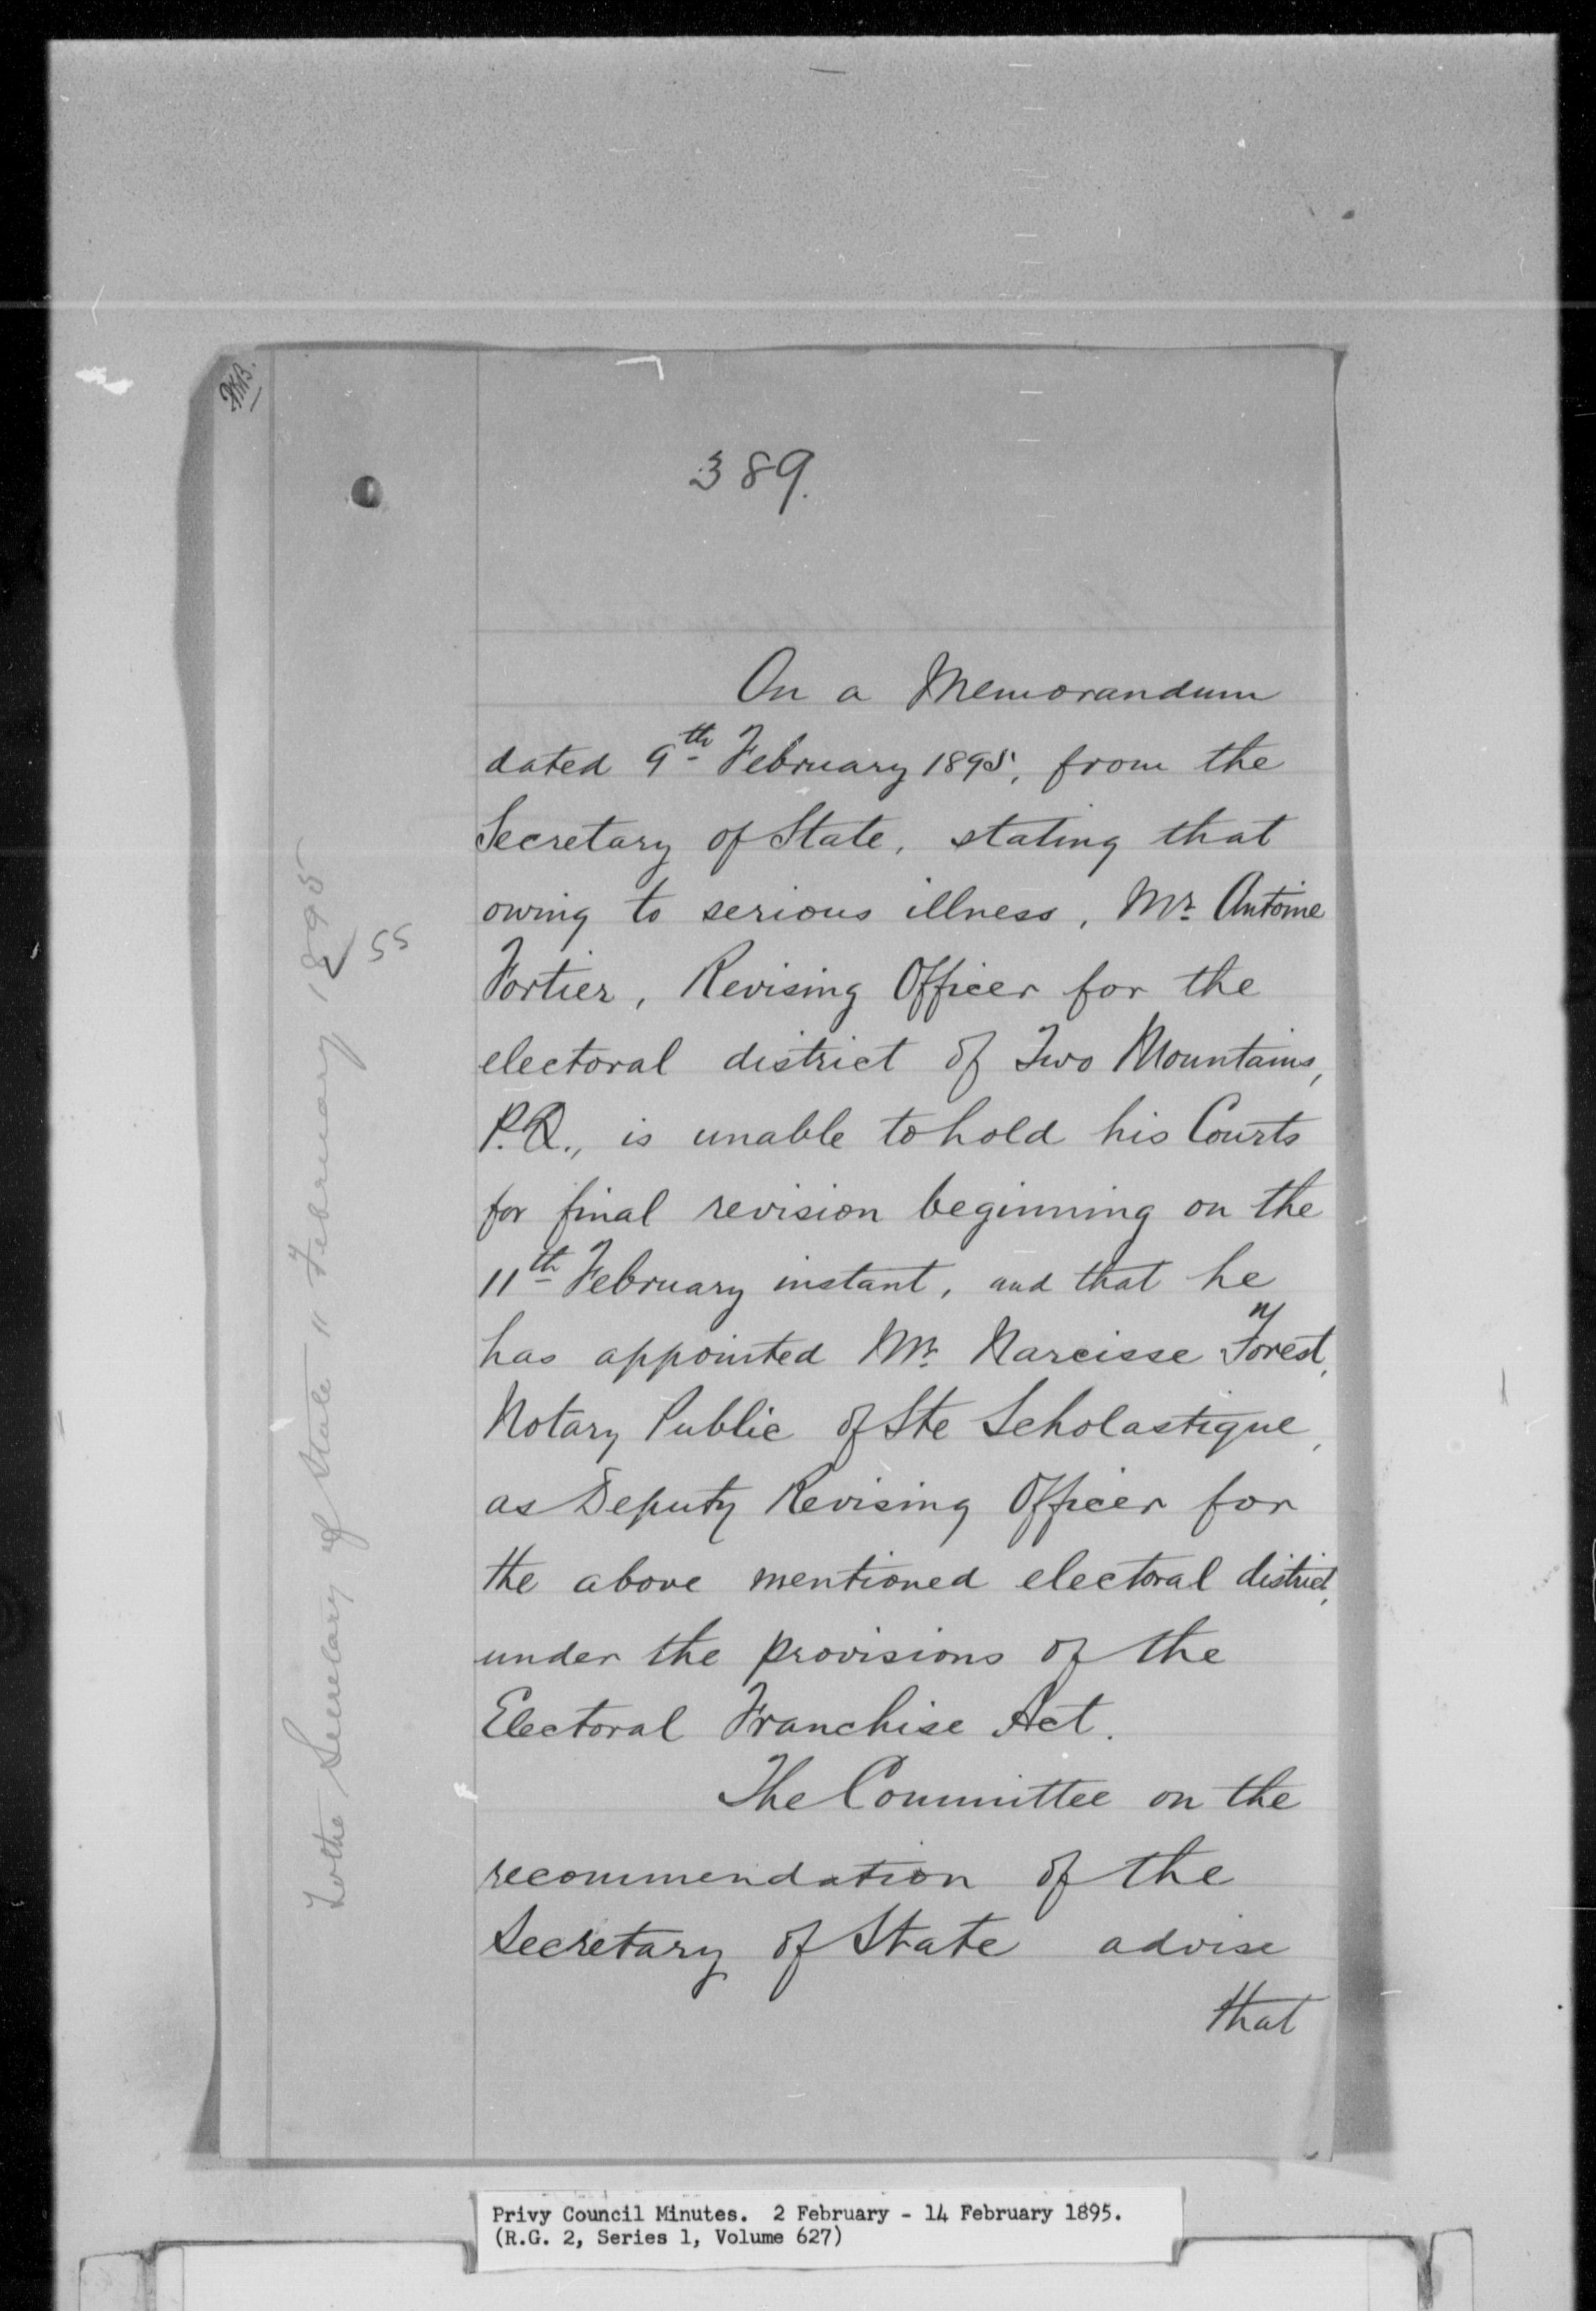 389.
On a Memorandum
dated 9th February 1895, from the
Secretary of State, stating that
owing to serious illness, Mr. Antoine
Fortier, Revising Officer for the
electoral district of Two Mountains,
P.Q., is unable to hold his Courts
for final revision beginning on the
11th February instant, and that he
has appointed Mr. Narcisse Forest,
Notary Public of Ste Scholastique,
as Deputy Revising Officer for
the above mentioned electoral district,
under the provisions of the
Electoral Franchise Act.
The Committee on the
recommendation of the
Secretary of State advise
that
To the Secretary of State 11 February 1895
55
Privy Council Minutes. 2 February - 14 February 1895.
(R.G. 2, Series 1, Volume 627)